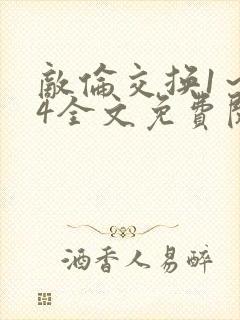 敵倫交换1～
4全文免費閱
酒香人易醉